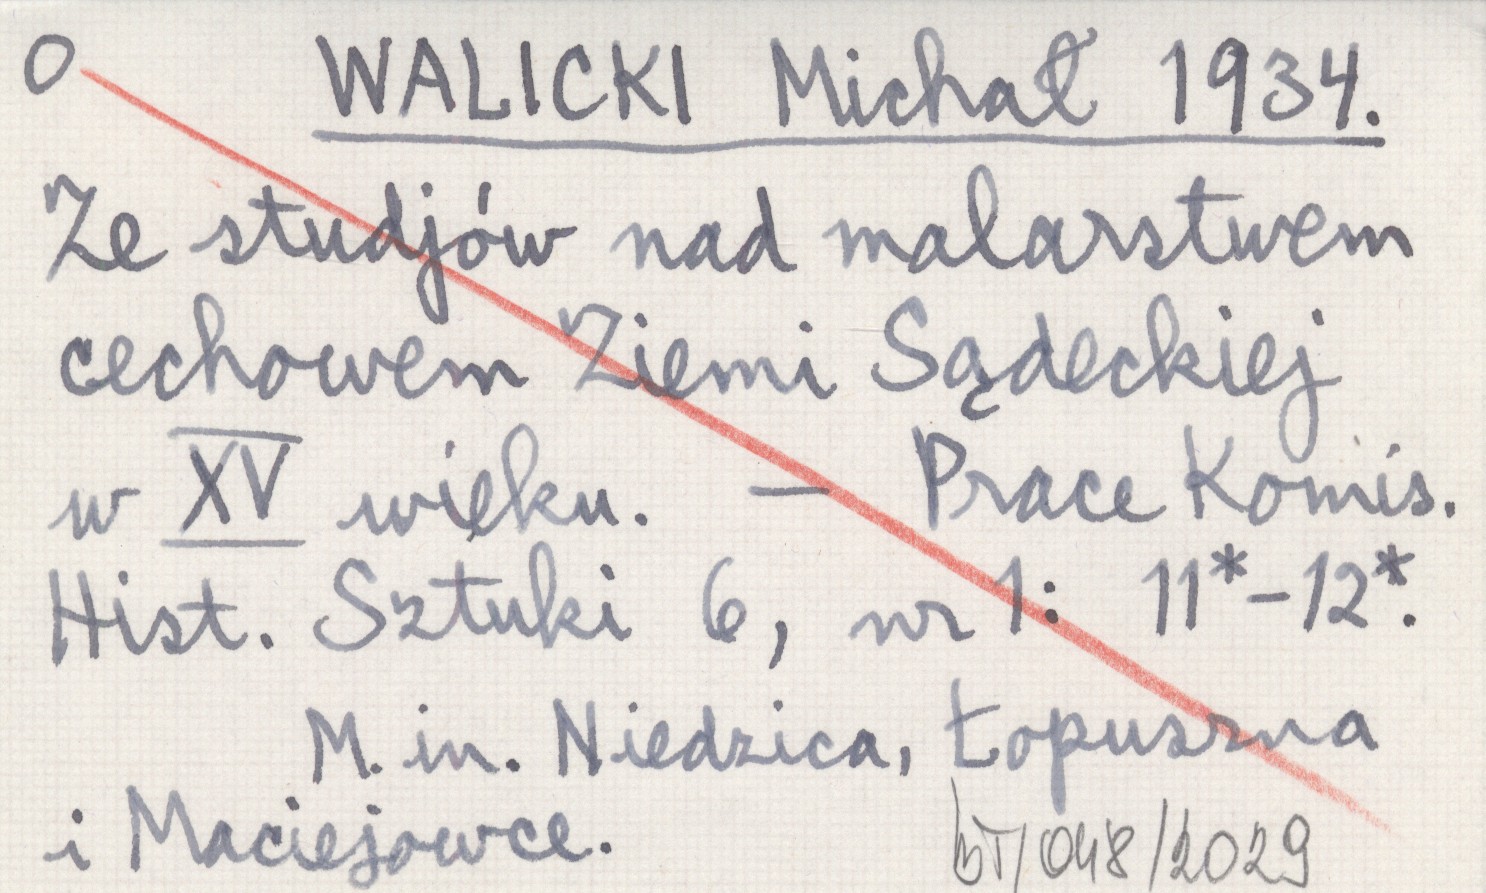 O WALICKI Michał 1934.
Ze studjów nad malarstwem
cechowem Ziemi Sądeckiej
w XV wieku. — Prace Komis.
Hist. Sztuki 6, nr 1: 11*-12*.
M. in. Niedzica, Łopuszna
i Maciejowce.
BT/048/2029